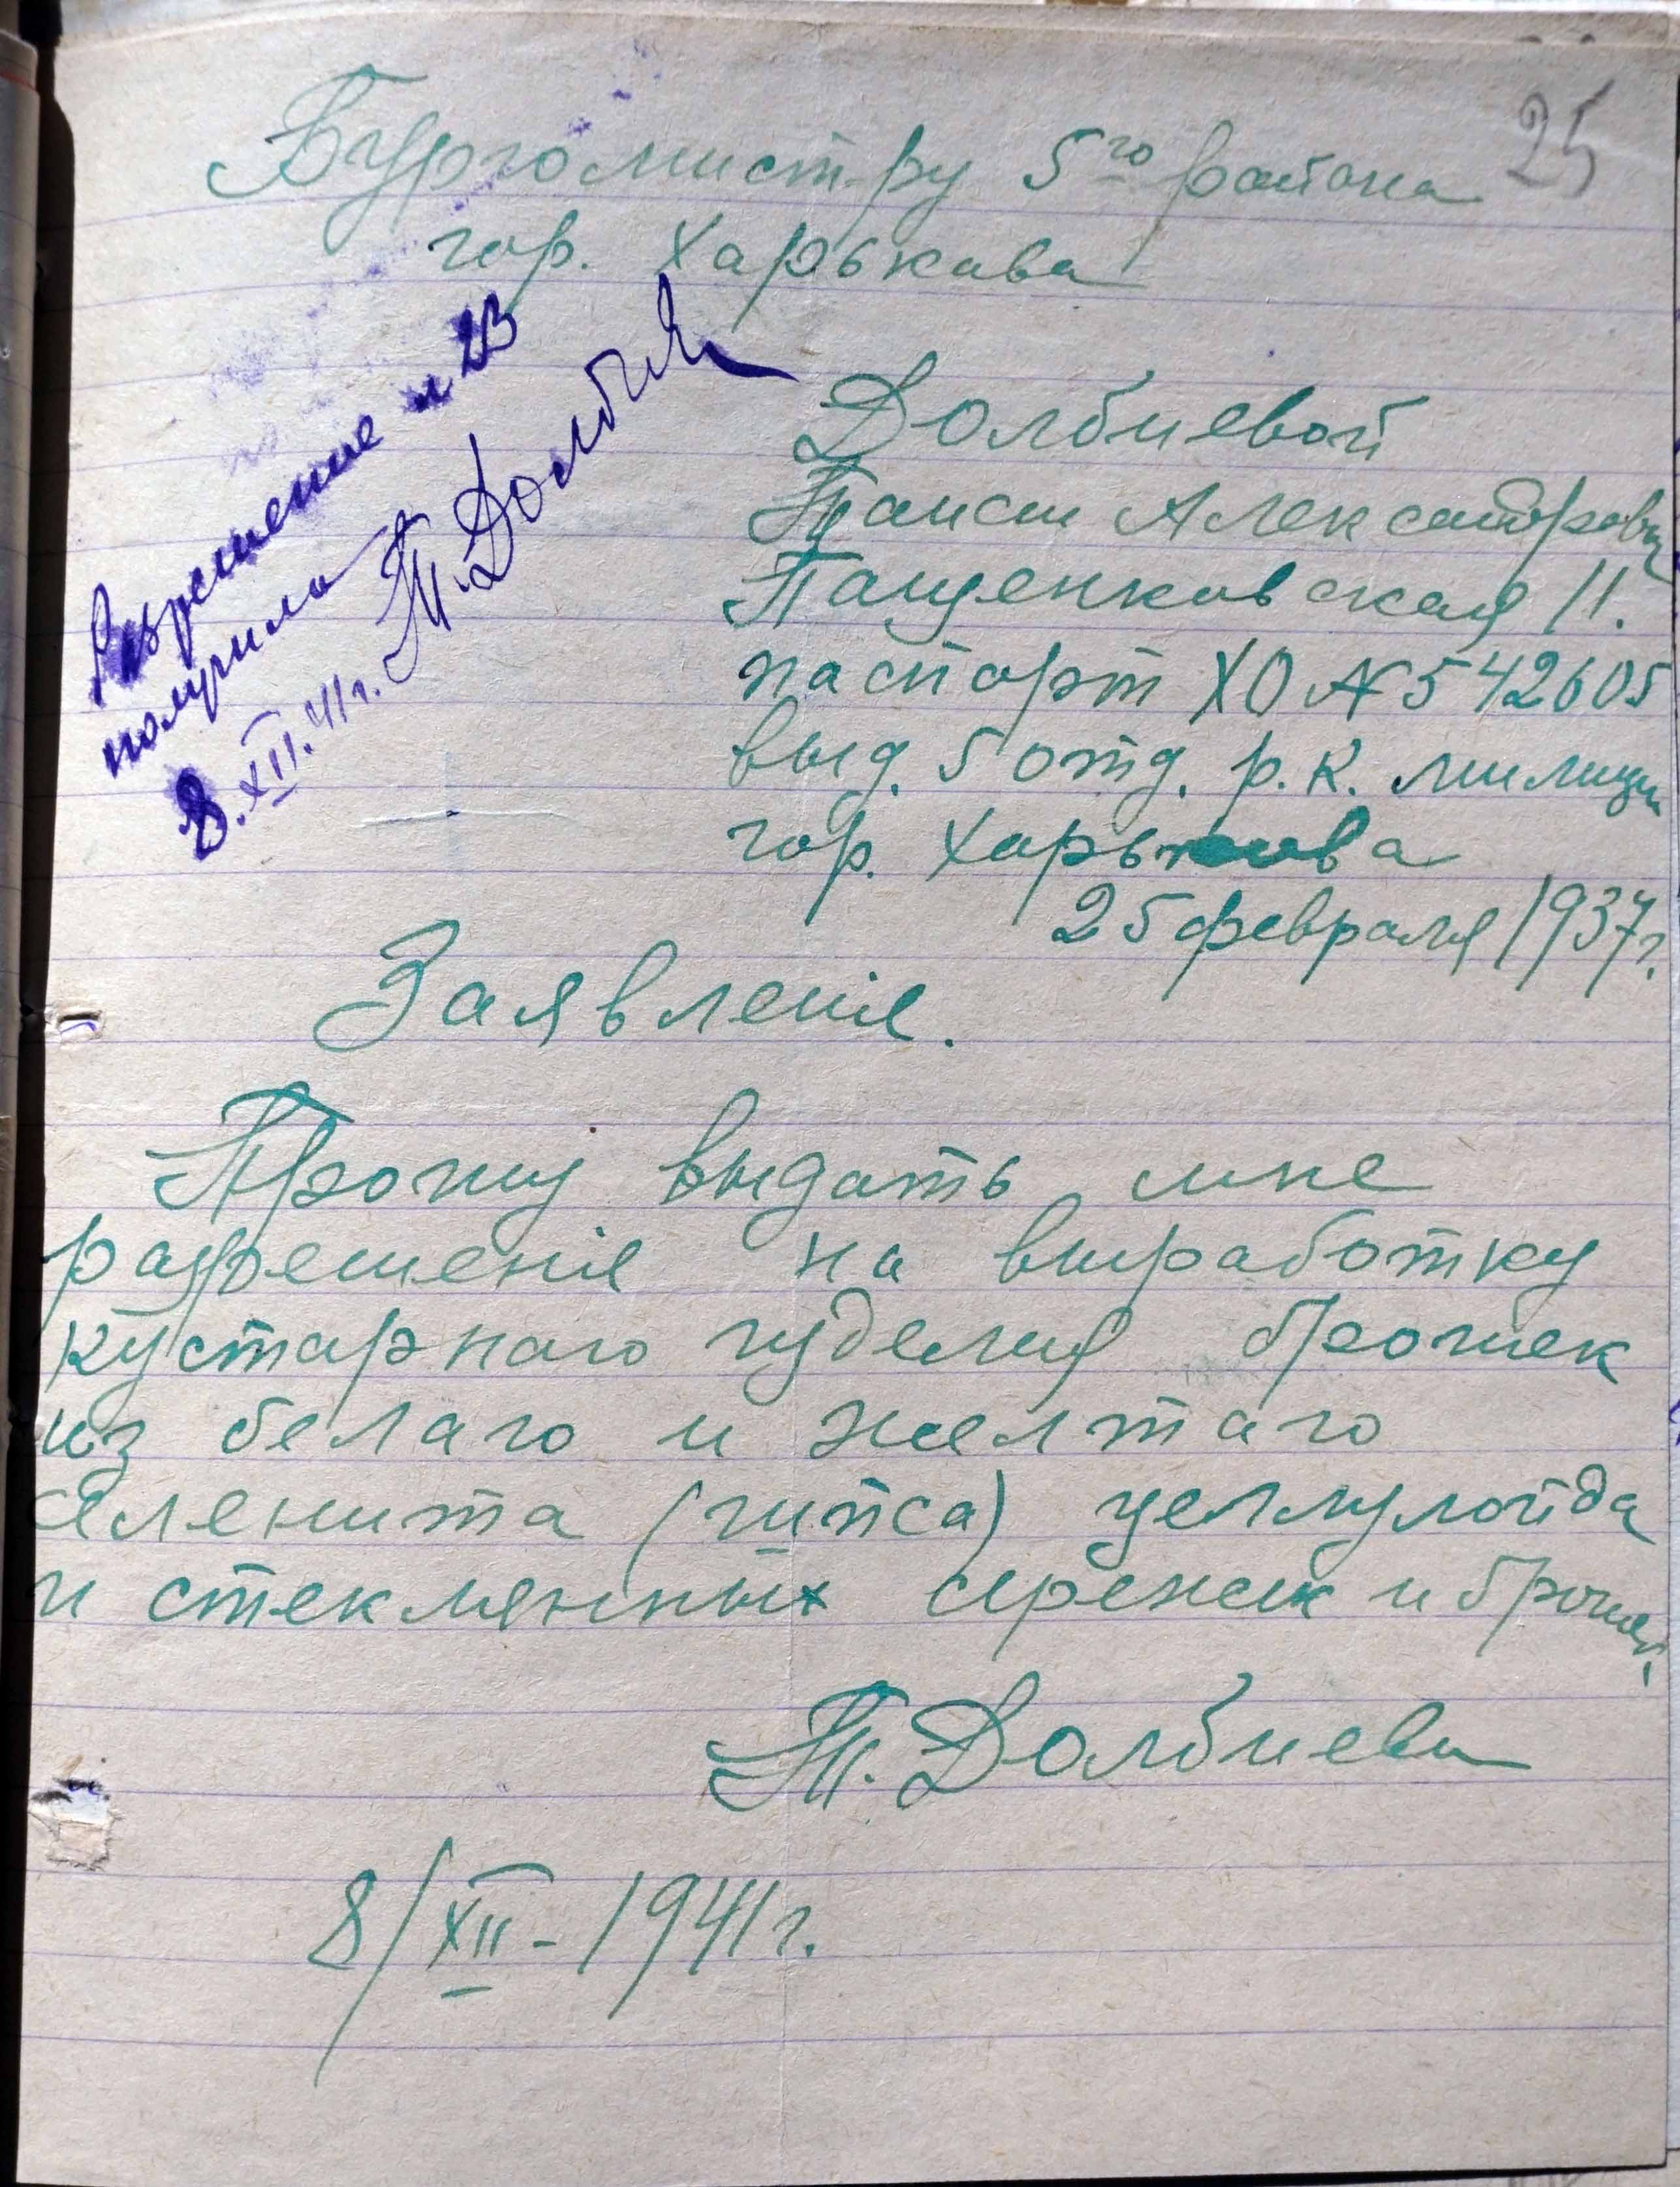 25
Бургомистру 5го района
гор. Харькова
Разрешение и ПВ
получила Т. Долби
8.XII.41г.
Долбиевой
Таисии Александровны
Пащенковская 11.
паспорт ХО № 542605
выд. 5 отд. р. к. милиции
гор. Харькова
25 февраля 1937 г.
Заявленіе.
Прошу выдать мне
разрешеніе на выработку
кустарнаго изделия брошек
из белаго и желтаго
селенита (гипса) целлулоида
и стеклянных сережек и брошек.
Т. Долбиева
8/XII - 1941 г.